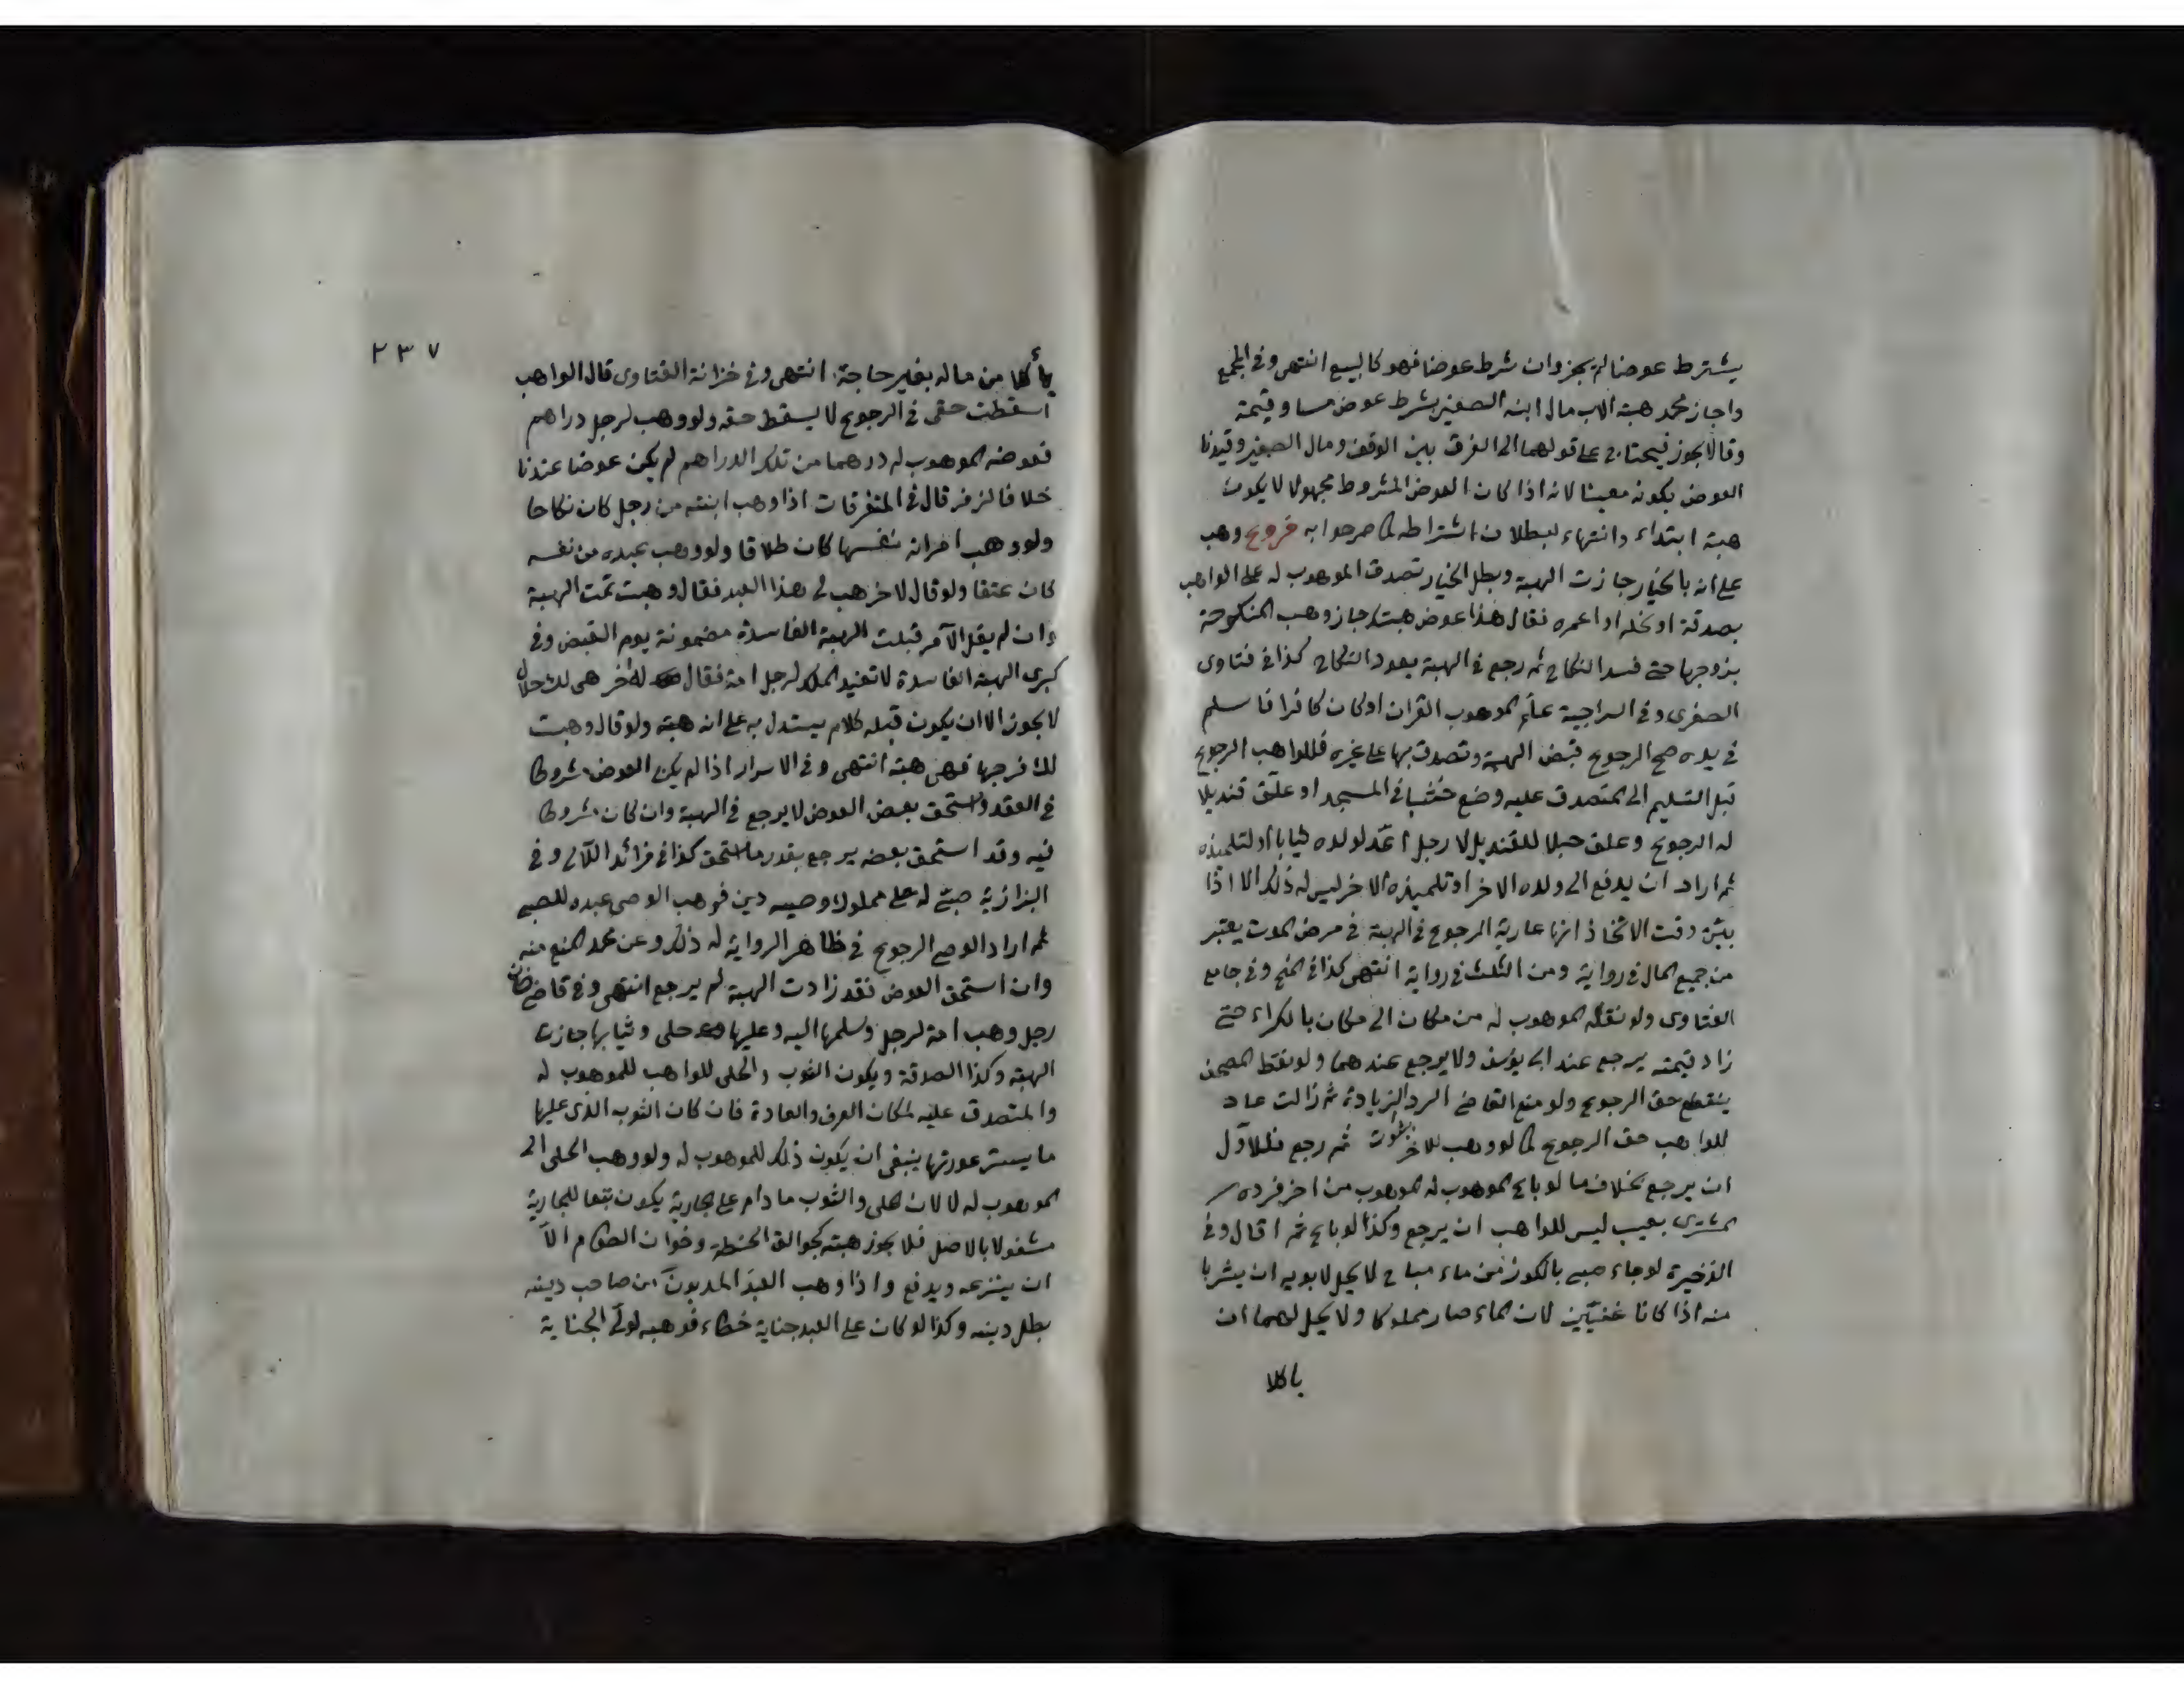 يشترط عوضا لم يجز وان شرط عوضا فهو كالبيع انتهى وفي المجمع
واجاز محمد هبة الاب مال ابنه الصغير بشرط عوض مساو قيمة
وقالا يجوز فيحتاج على قولهما الى الفرق بين الوقف ومال الصغير وقيدنا
العوض بكونه معينا لانه اذا كان العوض المشروط مجهولا لا يكون
هبة ابتداء وانتهاء لبطلان اشتراطه كما صرحوا به فروع وهب
على انه بالخيار جازت الهبة وبطل الخيار تصدق الموهوب له على الواهب
بصدقة او نحله او اعمره فقال هذا عوض هبتك جاز وهب المنكوحة
بزوجها حتى فسد النكاح ثم رجع في الهبة يعود النكاح كذا في فتاوى
الصغرى وفي السراجية علم الموهوب القران او كان كافرا فاسلم
في يده صح الرجوع قبض الهبة وتصدق بها على غيره فللواهب الرجوع
قبل التسليم الى المتصدق عليه وضع خشبا في المسجد او علق قنديلا
له الرجوع وعلق حبلا للقنديل لا رجل اعد لولده ثيابا او لتلميذه
ثم اراد ان يدفع الى ولده الاخر او تلميذه الاخر ليس له ذلك الا اذا
بين وقت الاتخاذ انها عارية الرجوع في الهبة في مرض الموت يعتبر
من جميع المال في رواية ومن الثلث في رواية انتهى كذا في المنح وفي جامع
الفتاوى ولو نقله الموهوب له من مكان الى مكان بالكراء حتى
زاد قيمته يرجع عند ابى يوسف ولا يرجع عندهما ولو نقط المصحف
ينقطع حق الرجوع ولو منع القاضي الرد للزيادة ثم زالت عاد
للواهب حق الرجوع كما لو وهب للاخر ثم رجع فللاول
ان يرجع بخلاف ما لو باع الموهوب له الموهوب من اخر فرده
المشترى بعيب ليس للواهب ان يرجع وكذا لو باع ثم اقال وفي
الذخيرة لو جاء صبى بالكوز من ماء مباح لا يحل لابويه ان يشربا
منه اذا كانا غنيين لان الماء صار مملوكا ولا يحل لهما ان
ياكلا
٢٣٧
يأكلا من ماله بغير حاجة انتهى وفي خزانة الفتاوى قال الواهب
اسقطت حقى في الرجوع لا يسقط حقه ولو وهب لرجل دراهم
فعوضه الموهوب له درهما من تلك الدراهم لم يكن عوضا عندنا
خلافا لزفر قال في المتفرقات اذا وهب ابنته من رجل كان نكاحا
ولو وهب امراته نفسها كان طلاقا ولو وهب عبده من نفسه
كان عتقا ولو قال لاخر هب لى هذا العبد فقال وهبت تمت الهبة
وان لم يقل الآمر قبلت الهبة الفاسدة مضمونة يوم القبض وفي
كبرى الهبة الفاسدة لا تفيد الملك لرجل امة فقال لاخر هى لك حلال
لا يجوز الا ان يكون قبله كلام يستدل به على انه هبة ولو قال وهبت
لك فرجها فهى هبة انتهى وفي الاسرار اذا لم يكن العوض مشروطا
في العقد واستحق بعض العوض لا يرجع في الهبة وان كان مشروطا
فيه وقد استحق بعضه يرجع بقدر ما استحق كذا في فرائد اللآلى وفي
البزازية صبى له على مملوك وصيه دين فوهب الوصى عبده للصبى
ثم اراد الوصى الرجوع في ظاهر الرواية له ذلك وعن محمد المنع منه
وان استحق العوض فقد زادت الهبة لم يرجع انتهى وفي قاضى خان
رجل وهب امة لرجل وسلمها اليه وعليها حلى وثيابها جازت
الهبة وكذا الصدقة ويكون الثوب والحلى للواهب للموهوب له
والمتصدق عليه لمكان العرف والعادة فان كان الثوب الذى عليها
ما يستر عورتها ينبغى ان يكون ذلك للموهوب له ولو وهب الحلى الى
الموهوب له لا لان الحلى والثوب ما دام على الجارية يكون تبعا للجارية
مشغولا بالاصل فلا يجوز هبته كجوالق الحنطة وخوان الطعام الا
ان ينزعه ويدفع واذا وهب العبد المديون من صاحب دينه
بطل دينه وكذا لو كان على العبد جناية خطاء فوهبه لولى الجناية